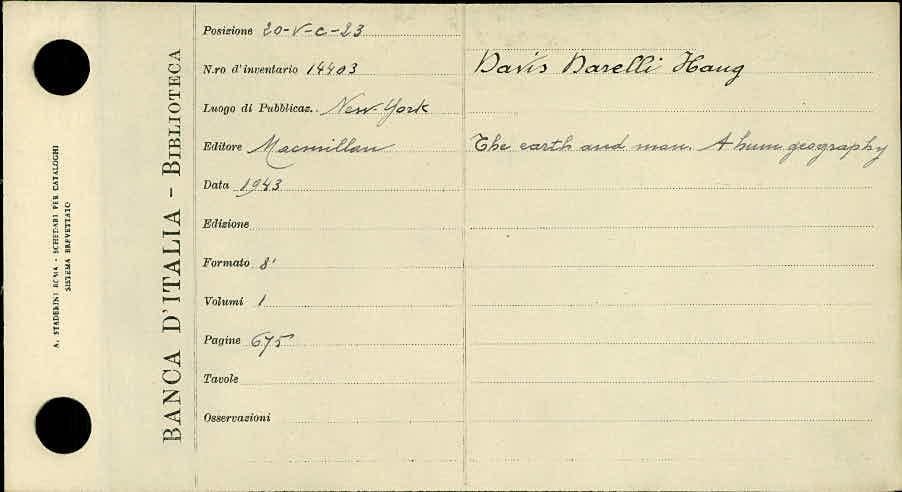 A. STADERINI ROMA - SCHEDARI PER CATALOGHI
SISTEMA BREVETTATO
BANCA D'ITALIA - BIBLIOTECA
Posizione 20-V-C-23
N.ro d'inventario 14403
Luogo di Pubblicaz. New-York
Editore Macmillan
Data 1943
Edizione
Formato 8°
Volumi 1
Pagine 675
Tavole
Osservazioni
Davis Darelli Haug
The earth and man. A hum. geography